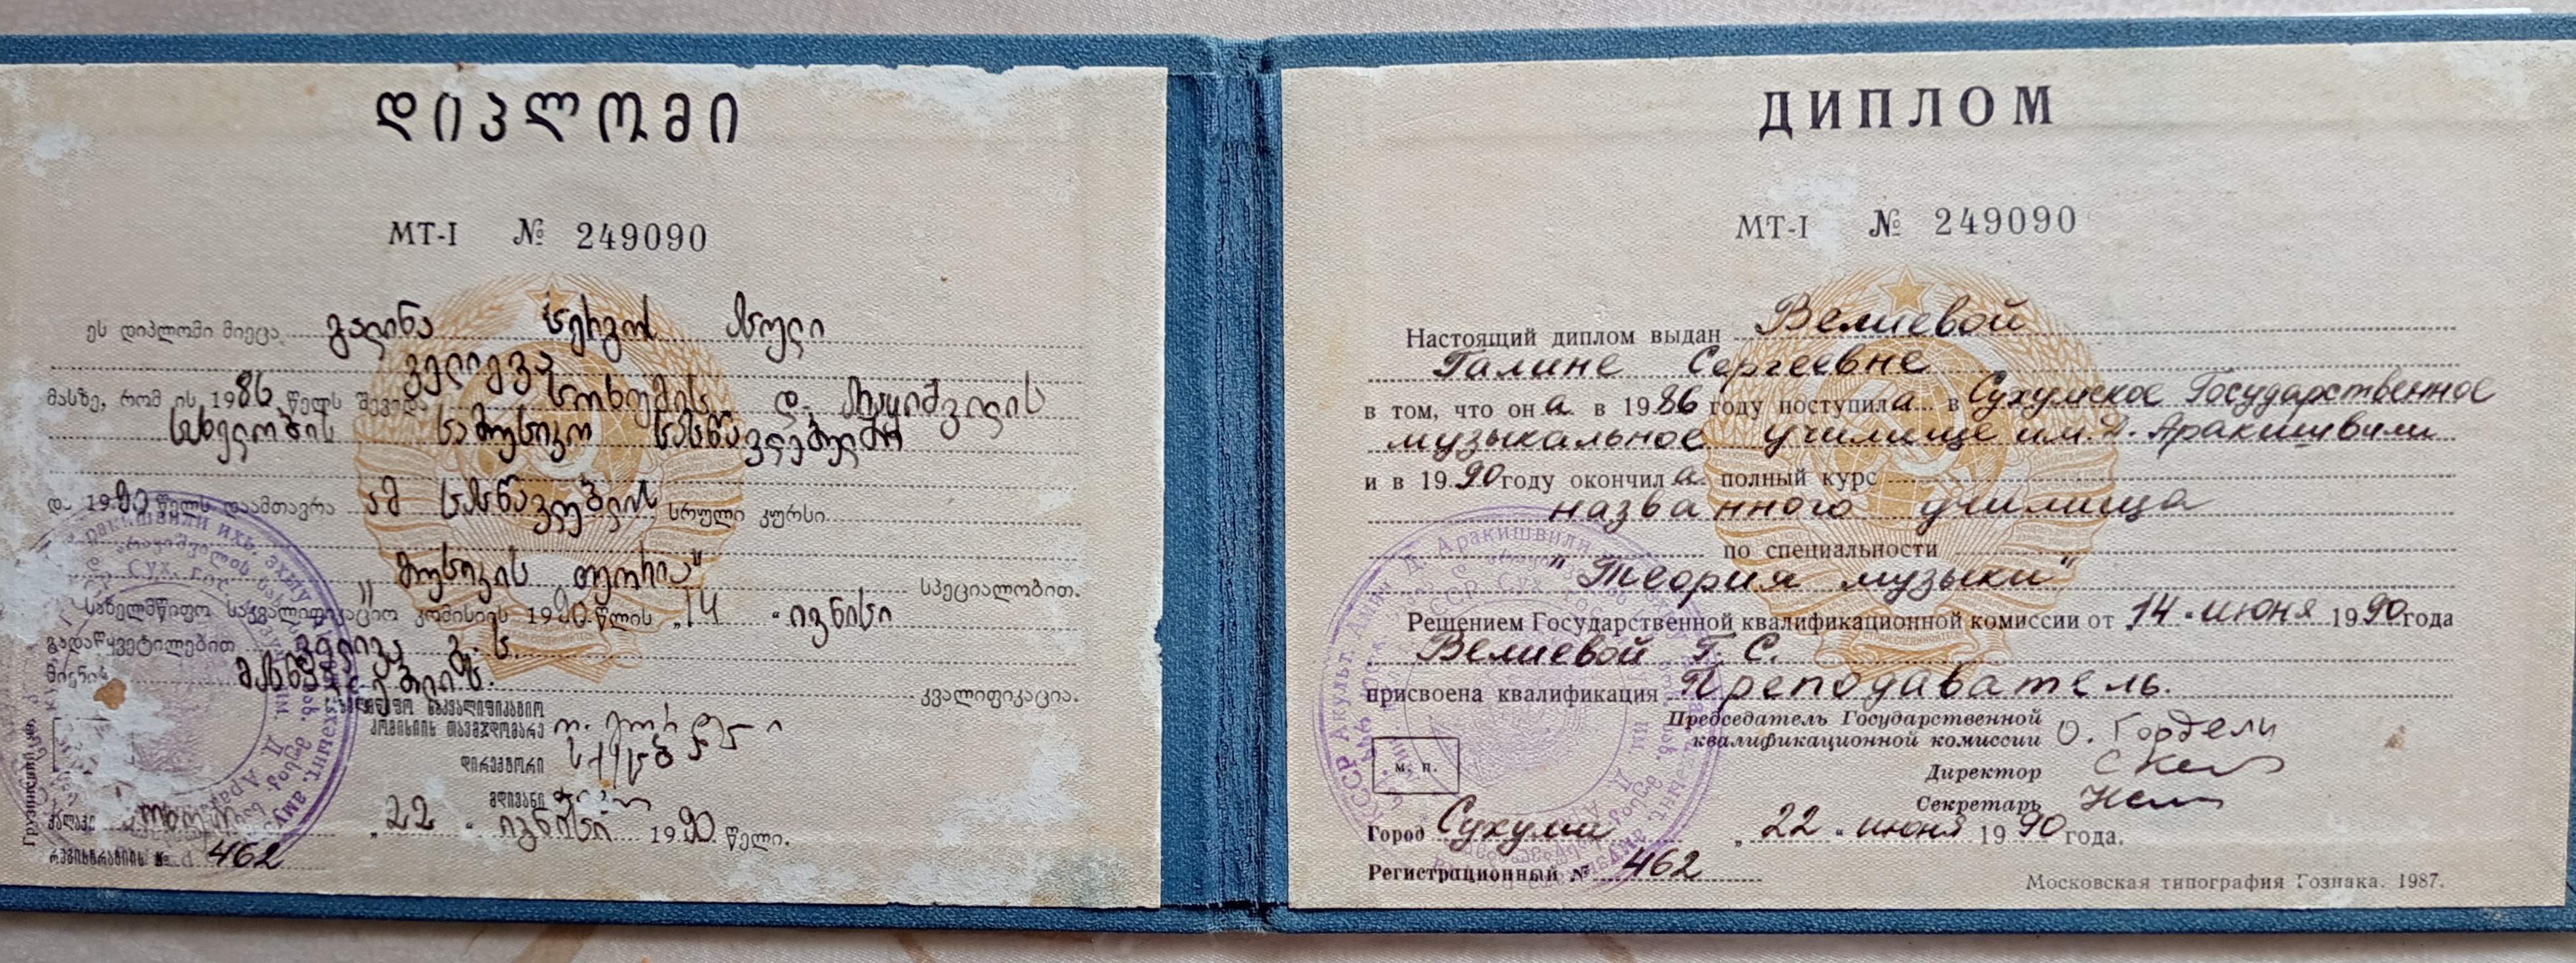 დიპლომი
МТ-I № 249090
ეს დიპლომი მიეცა გალინა სერგოს ასული
ველიევა
მასზე, რომ ის 1986 წელს შევიდა სოხუმის დ. არაყიშვილის
სახელობის სამუსიკო სასწავლებელში
და 1990 წელს დაამთავრა ამ სასწავლებლის სრული კურსი
„მუსიკის თეორია" სპეციალობით.
სახელმწიფო საკვალიფიკაციო კომისიის 1990 წლის „14 " ივნისი
გადაწყვეტილებით ველიევა გ. ს.
მიენიჭა კვალიფიკაცია.
სახელმწიფო საკვალიფიკაციო
კომისიის თავმჯდომარე
დირექტორი
მდივანი
ქალაქი „22 " ივნისი 1990 წელი.
რეგისტრაციის № 462
ДИПЛОМ
МТ-I № 249090
Настоящий диплом выдан Велиевой
Галине Сергеевне
в том, что она в 1986 году поступила в Сухумское Государственное
музыкальное училище им. Д. Аракишвили
и в 1990 году окончила полный курс
названного училища
по специальности
"Теория музыки"
Решением Государственной квалификационной комиссии от „14 " июня 1990 года
Велиевой Г. С.
присвоена квалификация Преподаватель.
Председатель Государственной
квалификационной комиссии О. Гордели
Директор
Секретарь
М. П.
Город Сухуми „22 " июня 1990 года.
Регистрационный № 462
Московская типография Гознака. 1987.